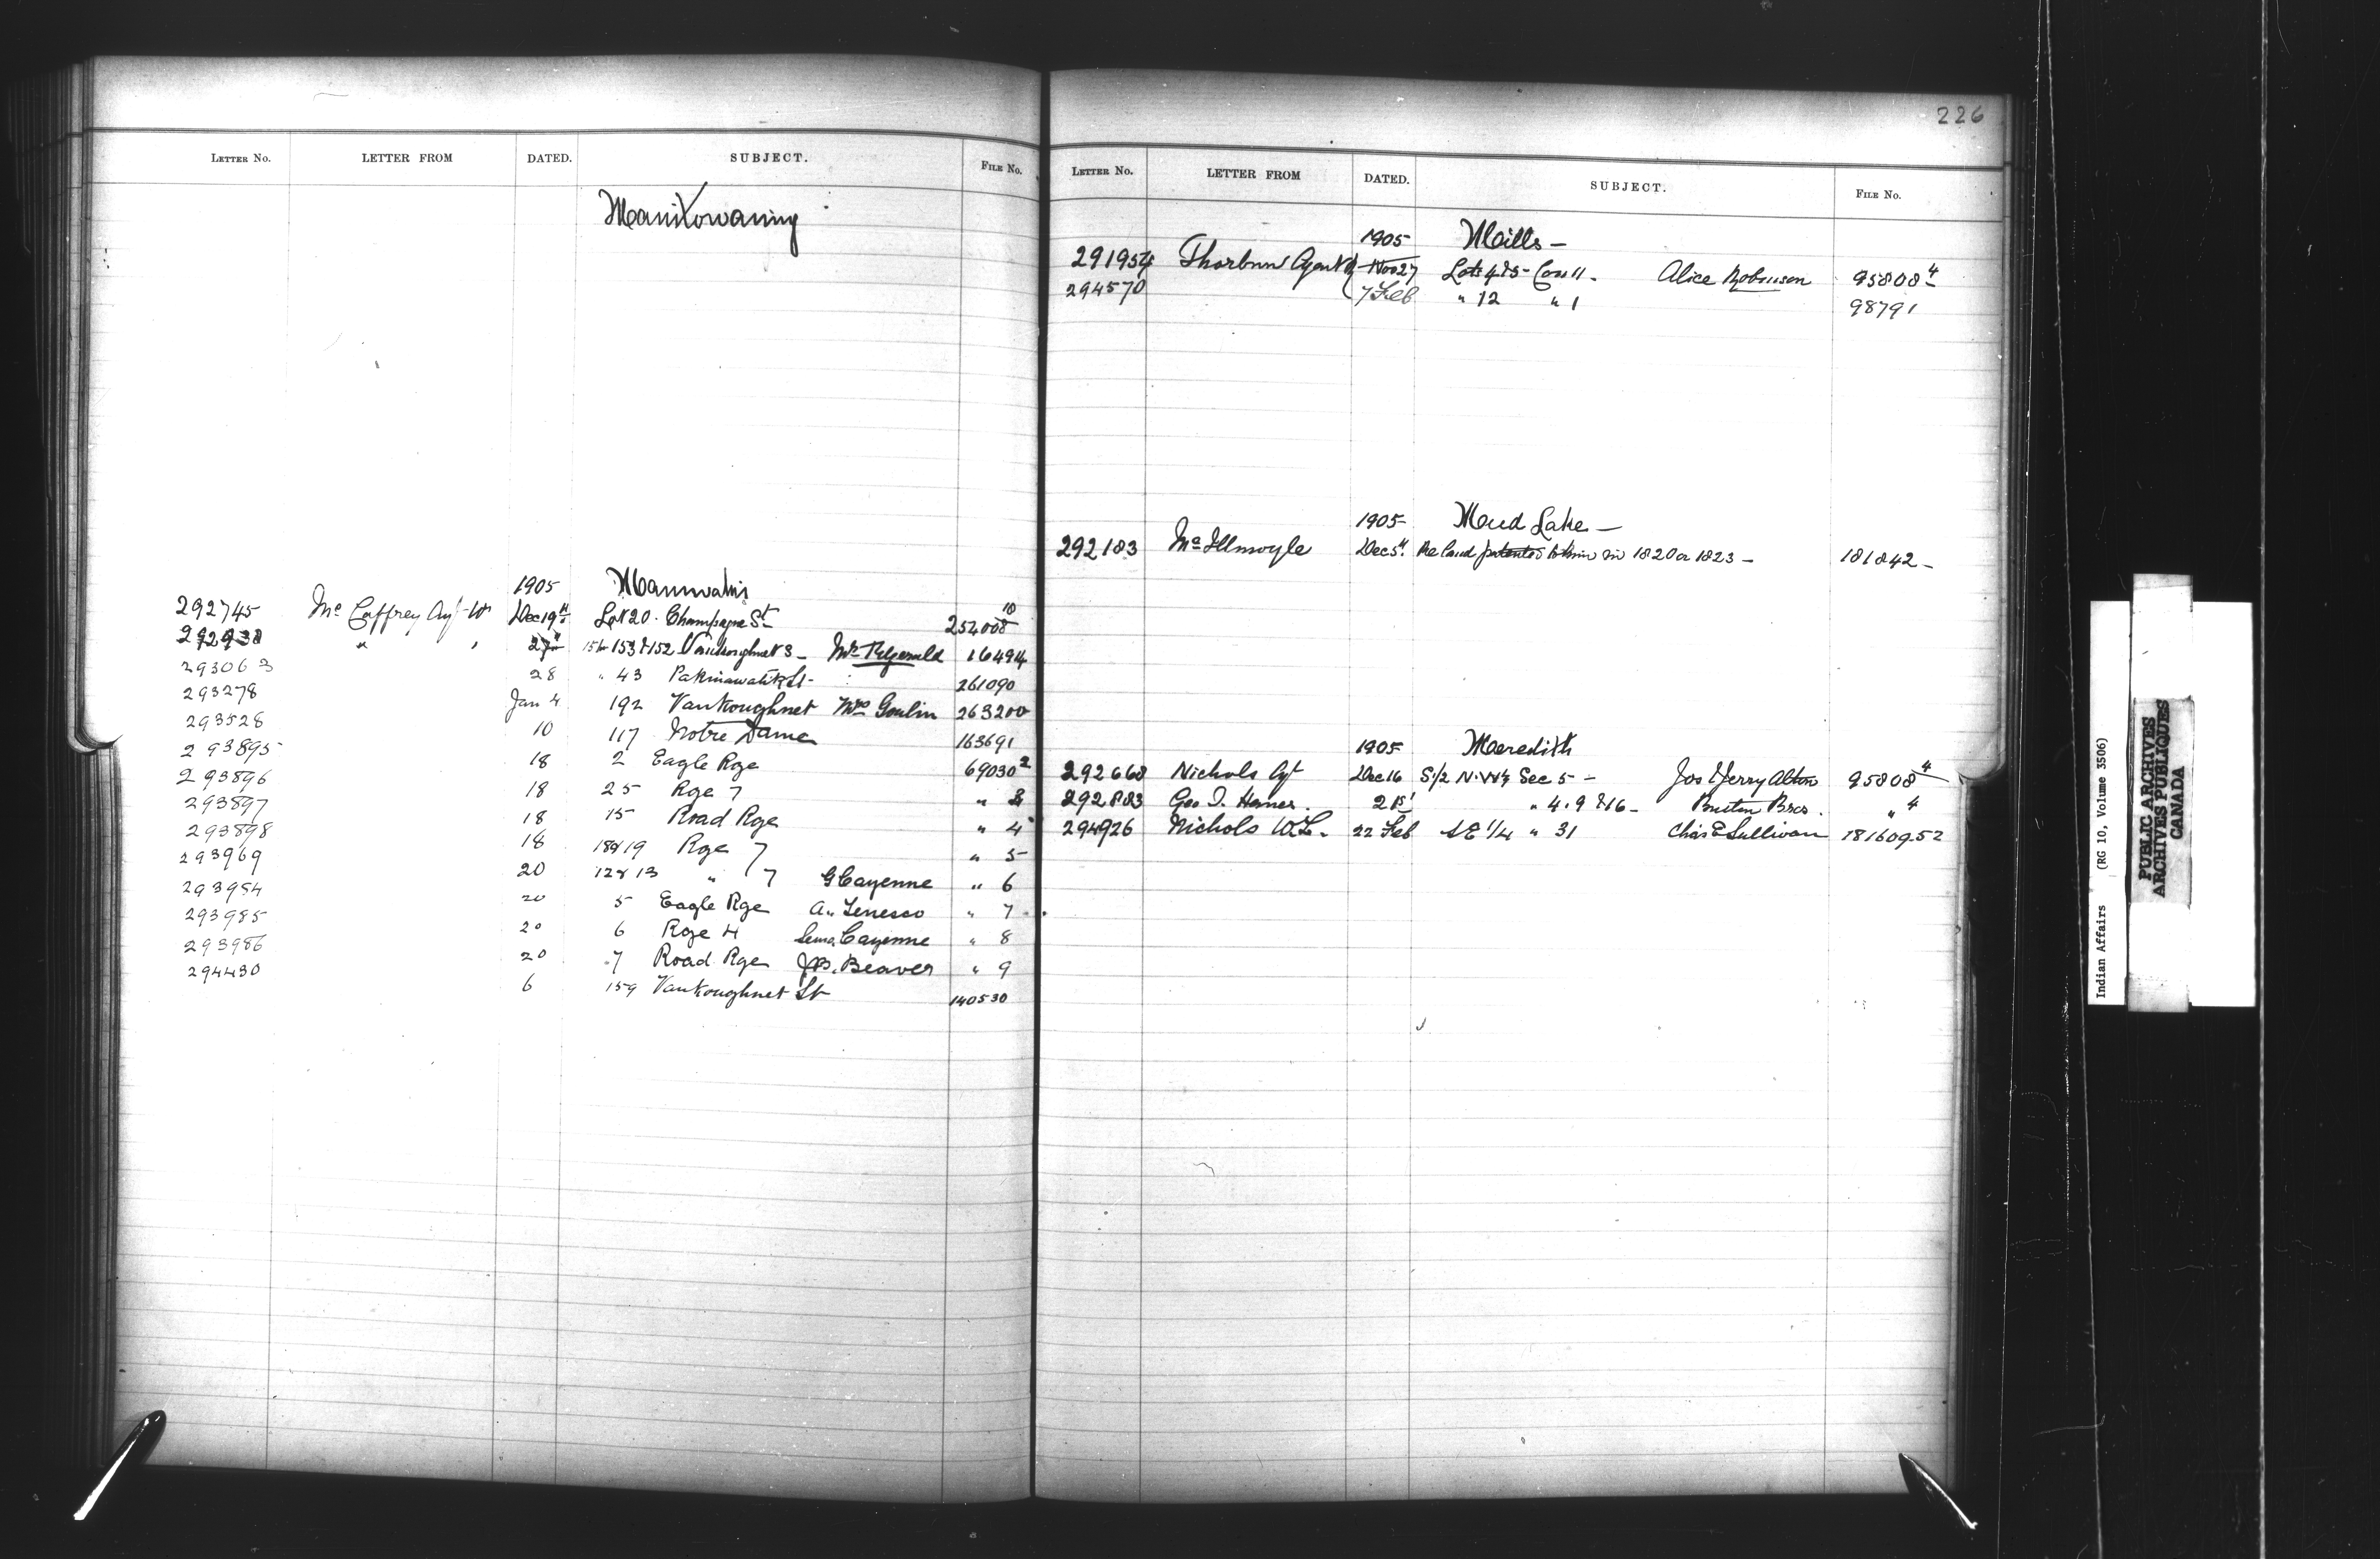 LETTER NO. LETTER FROM DATED. SUBJECT. FILE NO.
Manitowaning
1905 Maniwaki
292745 Mc Caffrey Agt Dec 19th Lot 20 Champagne St 254008 10
292938 " " 27th 153 & 152 Vankoughnet S - Fitzgerald 16494
293063 28 " 43 St - 261090
293278 Jan 4 192 Vankoughnet Mrs Goulin 263200
293528 10 117 Notre Dame 163691
293895 18 2 Eagle Rge 69030 2
293896 18 25 Rge 7 "
293897 18 15 Road Rge " 4
293898 18 18 & 19 Rge 7 " 5
293969 20 12 & 13 " 7 G Cayenne " 6
293984 20 5 Eagle Rge A. Tenesco " 7
293985 20 6 Rge 4 Cayenne " 8
293986 20 7 Road Rge J.B. Beaver " 9
294430 6 159 Vankoughnet St 140530
226
LETTER NO. LETTER FROM DATED. SUBJECT. FILE NO.
1905 Mills -
291954 Thorburn Agent Nov 27 Lots 4 & 5 - Con 11 - Alice Robinson 95808 4
294570 7 Feb " 12 " 1 98791
1905 Mud Lake -
292183 McIllmoyle Dec 5th Re land patented to him in 1820 or 1823 - 181842 -
1905 Meredith
292660 Nichols Agt Dec 16 S 1/2 N.W 1/4 Sec 5 - Jos & Jerry 95808 4
292883 Geo. 21st " 4. 9 & 16 - Bros. " 4
294926 Nichols W.L. 22 Feb S E 1/4 " 31 Chas E Sullivan 181609.52
Indian Affairs (RG 10, Volume 3506)
PUBLIC ARCHIVES
ARCHIVES PUBLIQUES
CANADA